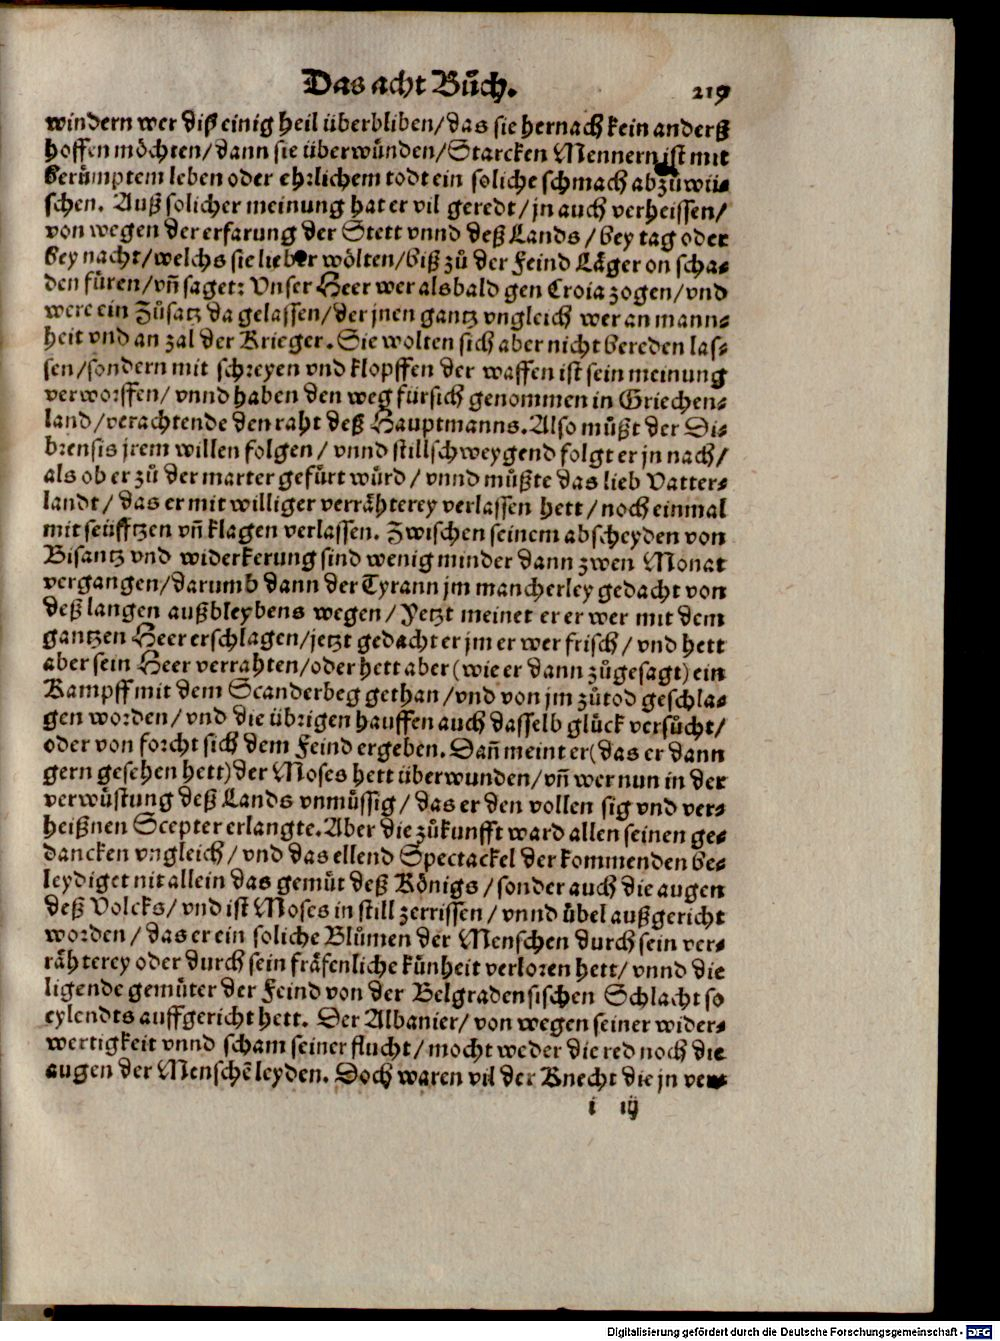 Das acht Bůch. 219
windern wer diß einig heil überbliben/das sie hernach kein anderß
hoffen möchten/dann sie überwünden/Starcken Mennern ist mit
berümptem leben oder ehrlichem todt ein soliche schmach abzůwü-
schen. Auß solicher meinung hat er vil geredt/jn auch verheissen/
von wegen der erfarung der Stett vnnd deß Lands/bey tag oder
bey nacht/welchs sie lieber wölten/biß zů der Feind Läger on scha-
den füren/vñ saget: Unser Heer wer alsbald gen Croia zogen/vnd
were ein Zůsatz da gelassen/der jnen gantz vngleich wer an mann-
heit vnd an zal der Krieger. Sie wolten sich aber nicht bereden las-
sen/sondern mit schreyen vnd klopffen der waffen ist sein meinung
verworffen/vnnd haben den weg fürsich genommen in Griechen-
land/verachtende den raht deß Hauptmanns. Also můßt der Di-
brensis jrem willen folgen/vnnd stillschweygend folgt er jn nach/
als ob er zů der marter gefürt würd/vnnd můßte das lieb Vatter-
landt/das er mit williger verrähterey verlassen hett/noch einmal
mit seüfftzen vñ klagen verlassen. Zwischen seinem abscheyden von
Bisantz vnd widerkerung sind wenig minder dann zwen Monat
vergangen/darumb dann der Tyrann jm mancherley gedacht von
deß langen außbleybens wegen/Yetzt meinet er er wer mit dem
gantzen Heer erschlagen/jetzt gedacht er jm er wer frisch/vnd hett
aber sein Heer verrahten/oder hett aber (wie er dann zůgesagt) ein
Kampff mit dem Scanderbeg gethan/vnd von jm zůtod geschla-
gen worden/vnd die übrigen hauffen auch dasselb glück versůcht/
oder von forcht sich dem Feind ergeben. Dañ meint er (das er dann
gern gesehen hett) der Moses hett überwunden/vñ wer nun in der
verwüstung deß Lands vnmüssig/das er den vollen sig vnd ver-
heißnen Scepter erlangte. Aber die zůkunfft ward allen seinen ge-
dancken vngleich/vnd das ellend Spectackel der kommenden be-
leydiget nit allein das gemüt deß Königs/sonder auch die augen
deß Volcks/vnd ist Moses in still zerrissen/vnnd übel außgericht
worden/das er ein soliche Blůmen der Menschen durch sein ver-
rähterey oder durch sein fräfenliche künheit verloren hett/vnnd die
ligende gemüter der Feind von der Belgradensischen Schlacht so
eylendts auffgericht hett. Der Albanier/von wegen seiner wider-
wertigkeit vnnd scham seiner flucht/mocht weder die red noch die
augen der Menschē leyden. Doch waren vil der Knecht die jn ver-
i iij
Digitalisierung gefördert durch die Deutsche Forschungsgemeinschaft - DFG